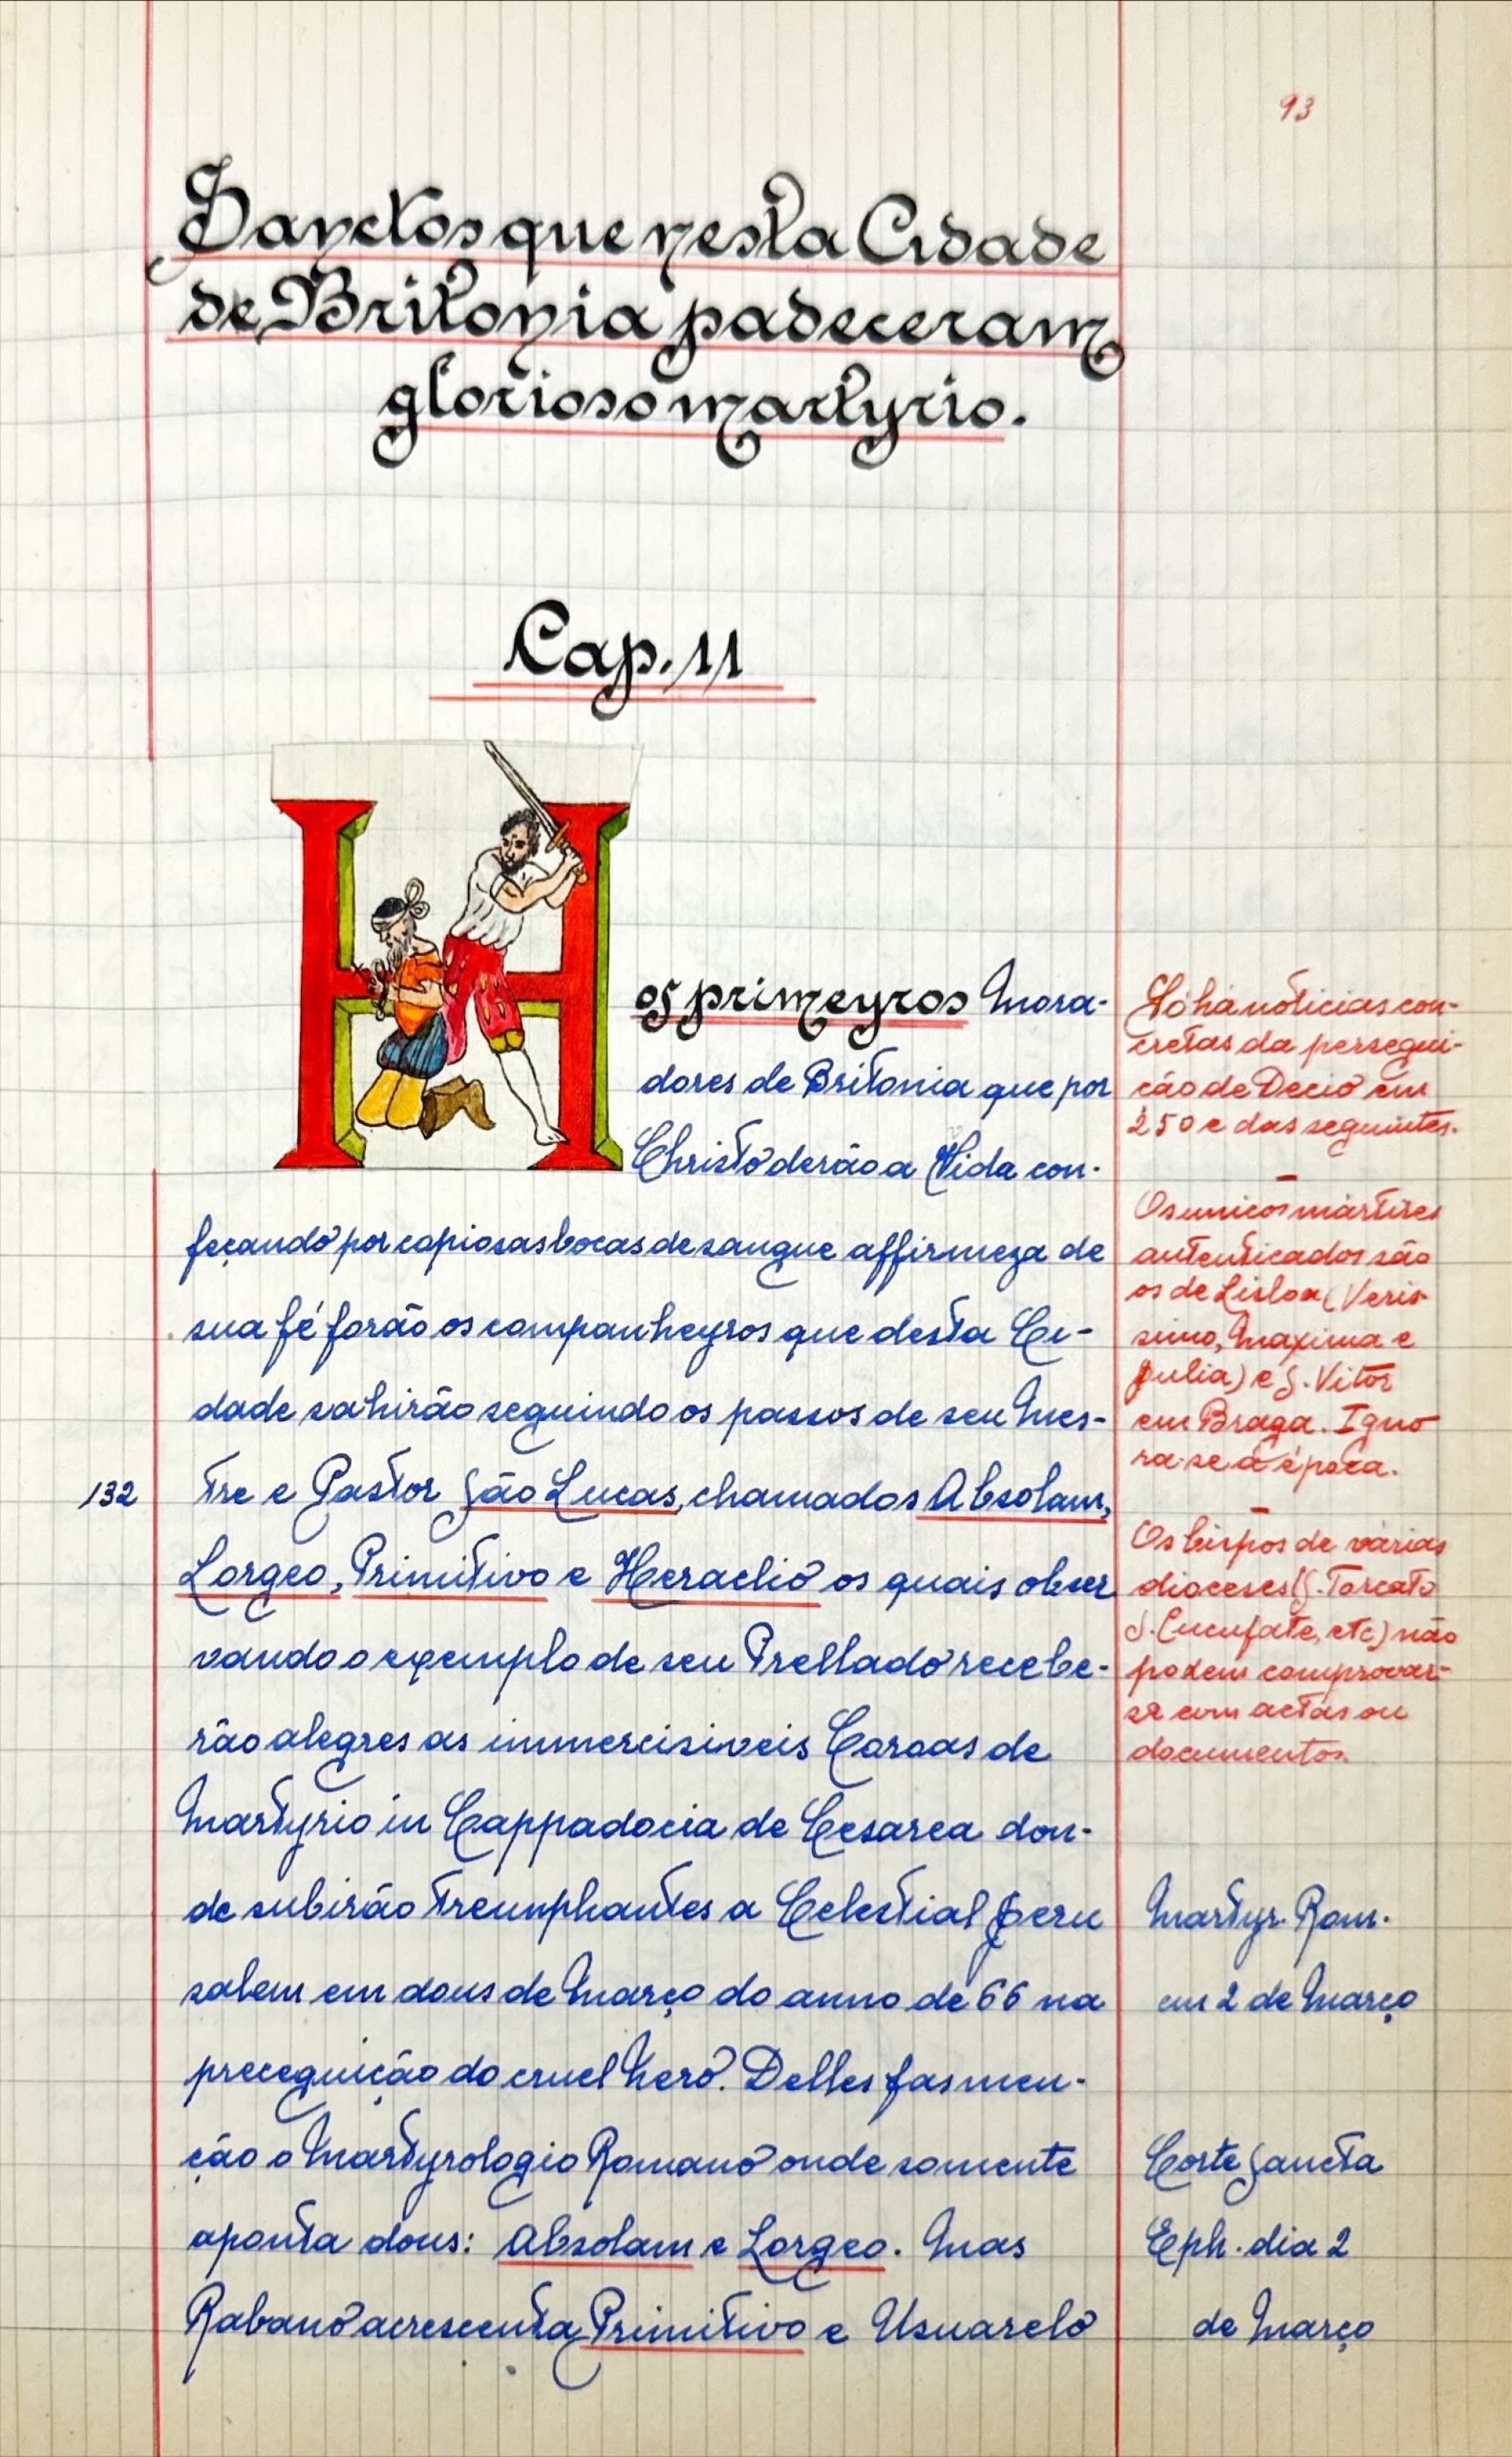 93
Sanctos que nesta Cidade
de Britonia padeceram
glorioso martyrio.
Cap. 11
H
os primeyros Mora-
dores de Britonia que por
Christo derão a Vida con-
feçando por copiosas bocas de sangue affirmeza de
sua fé forão os companheyros que desta Ci-
dade sahirão seguindo os passos de seu Mes-
132
tre e Pastor São Lucas, chamados Absolam,
Lorgeo, Primitivo e Heraclio os quais obser
vando o exemplo de seu Prellado recebe-
rão alegres as immercisiveis Coroas de
Martyrio in Cappadocia de Cesarea don-
de subirão treumphantes a Celestial Jeru
salem em dous de Março do anno de 66 na
preceguição do cruel Nero. Delles fas men-
ção o Martyrologio Romano onde somente
aponta dous: Absolam e Lorgeo. Mas
Rabano acrescenta Primitivo e Usuarelo
Só há noticias con-
cretas da persegui-
ção de Decio em
250 e das seguintes.
Os unicos mártires
autenticados são
os de Lisboa (Veris-
simo, Maxima e
Julia) e S. Vitor
em Braga. Igno
ra-se a época.
Os bispos de várias
dioceses (S. Torcato
S. Cucufate, etc) não
podem comprovar-
se com actas ou
documentos.
Martyr. Rom.
em 2 de Março
Corte Sancta
Eph. dia 2
de Março